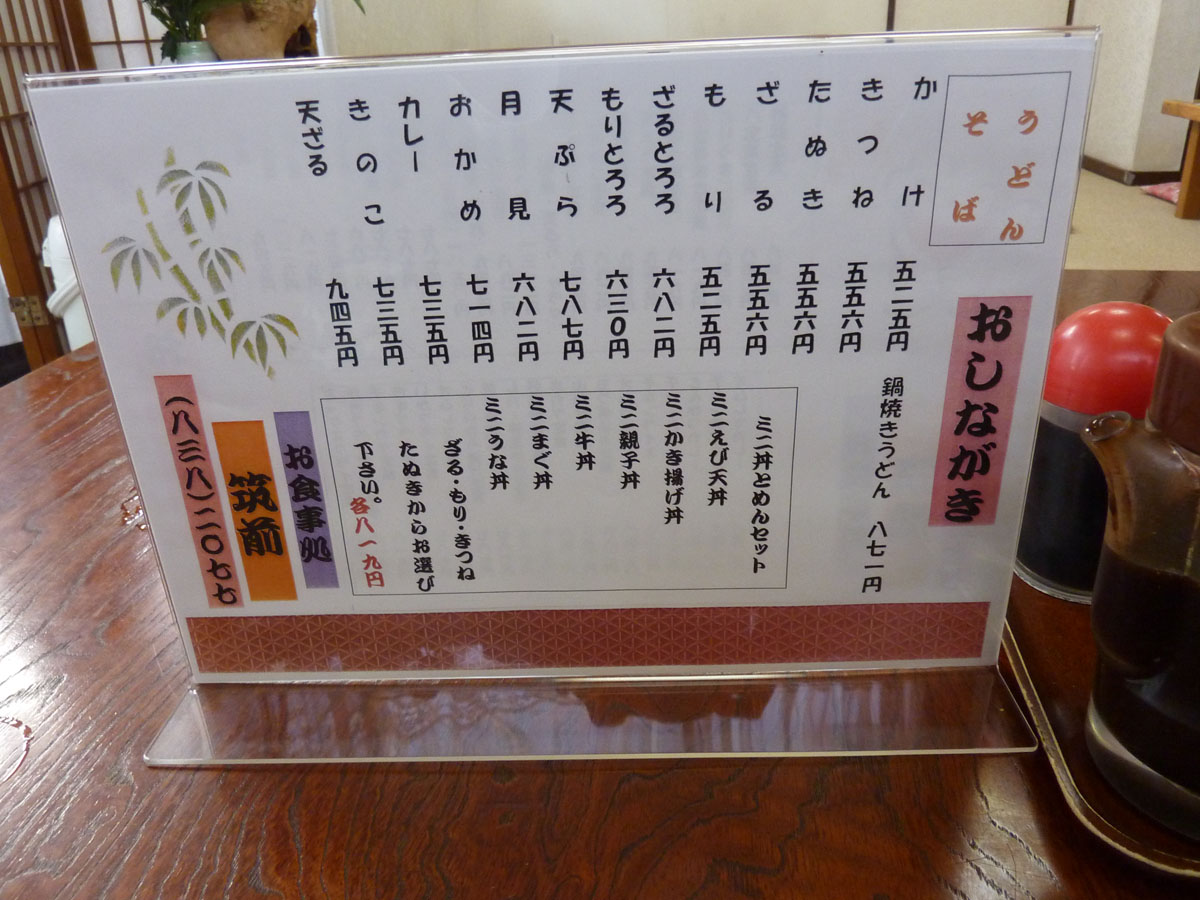 うどん
そば
おしながき
かけ 五二五円
きつね 五五六円
たぬき 五五六円
ざる 五五六円
もり 五二五円
ざるとろろ 六八二円
もりとろろ 六三〇円
天ぷら 七八七円
月見 六八二円
おかめ 七一四円
カレー 七三五円
きのこ 七三五円
天ざる 九四五円
鍋焼きうどん 八七一円
ミニ丼とめんセット
ミニえび天丼
ミニかき揚げ丼
ミニ親子丼
ミニ牛丼
ミニまぐ丼
ミニうな丼
ざる・もり・きつね
たぬきからお選び
下さい。各八一九円
お食事処
筑前
(八三八)二〇七七